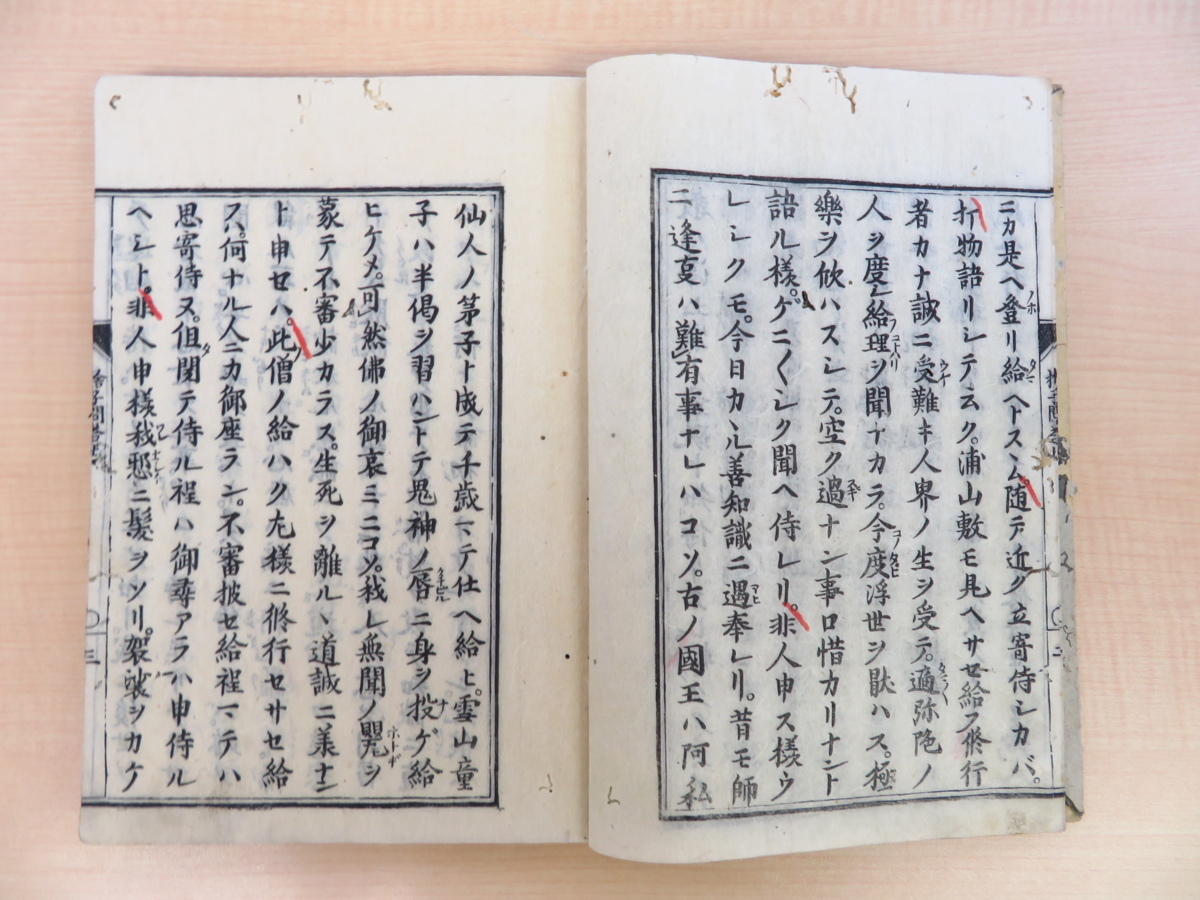 ニカ是ヘ登リ給ヘトスヽム。随テ近ク立寄侍シカバ。
扩物語リシテ云ク。浦山敷モ見ヘサセ給フ修行
者カナ誠ニ受難キ人界ノ生ヲ受テ。適弥陀ノ
人ヲ度シ給理ヲ聞ナカラ。今度浮世ヲ猒ハス。極
樂ヲ欣ハスシテ。空ク過ナン事口惜カリナント
語ル様。ゲニ〱シク聞ヘ侍レリ。非人申ス様ウ
レシクモ。今日カヽル善知識ニ遇奉レリ。昔モ師
ニ逢叓ハ難有事ナレハコソ。古ノ國王ハ阿私
仙人ノ苐子ト成テ千歳マテ仕ヘ給ヒ。雪山童
子ハ半偈ヲ習ハントテ鬼神ノ唇ニ身ヲ投ゲ給
ヒケメ。可然佛ノ御哀ミニコソ。我レ無聞ノ
蒙テ不審少カラス。生死ヲ離ルヽ道誠ニ
ト申セハ。此僧ノ給ハク左様ニ修行セサセ給
フハ。何ナル人ニカ御座ラン。不審披セ給程マテハ
思寄侍ヌ。但聞テ侍ル程ハ御尋アラハ申侍ル
ヘシト。非人申様我憖ニ髪ヲソリ。袈裟ヲカケ